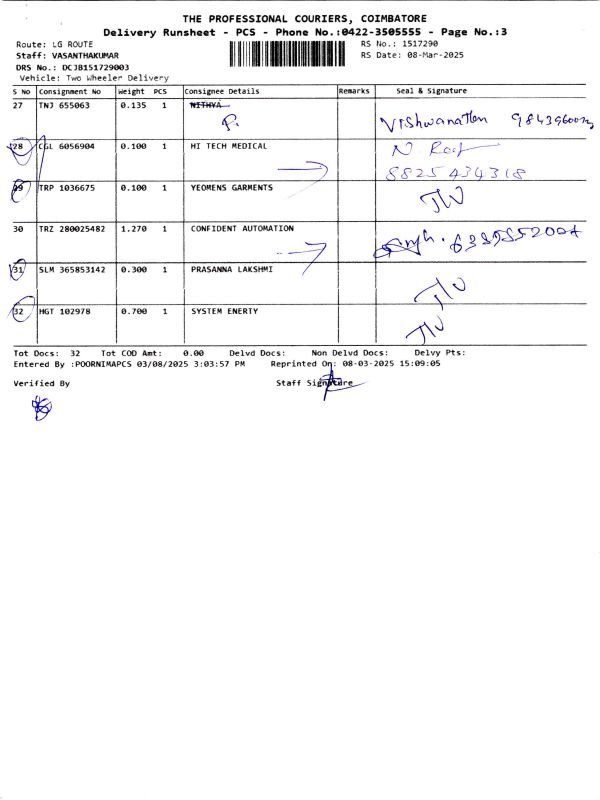 THE PROFESSIONAL COURIERS, COIMBATORE
Delivery Runsheet - PCS - Phone No.:0422-3505555 - Page No.:3
Route: LG ROUTE RS No.: 1517290
Staff: VASANTHAKUMAR RS Date: 08-Mar-2025
DRS No.: DCJB151729003
Vehicle: Two Wheeler Delivery
S No Consignment No Weight PCS Consignee Details Remarks Seal & Signature
27 TNJ 655063 0.135 1 NITHYA
Vishwanathan
28 CGL 6056904 0.100 1 HI TECH MEDICAL N
8825434318
29 TRP 1036675 0.100 1 YEOMENS GARMENTS
30 TRZ 280025482 1.270 1 CONFIDENT AUTOMATION
31 SLM 365853142 0.300 1 PRASANNA LAKSHMI
32 HGT 102978 0.700 1 SYSTEM ENERTY
Tot Docs: 32 Tot COD Amt: 0.00 Delvd Docs: Non Delvd Docs: Delvy Pts:
Entered By :POORNIMAPCS 03/08/2025 3:03:57 PM Reprinted On: 08-03-2025 15:09:05
Verified By Staff Signature